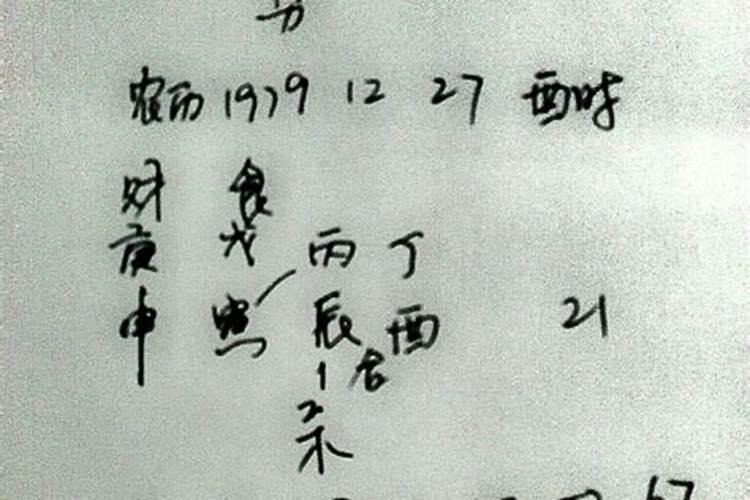 农历 1979 12 27 酉时
财 食
庚 戊 丙 丁
申 寅 辰 酉 21
1 合
2